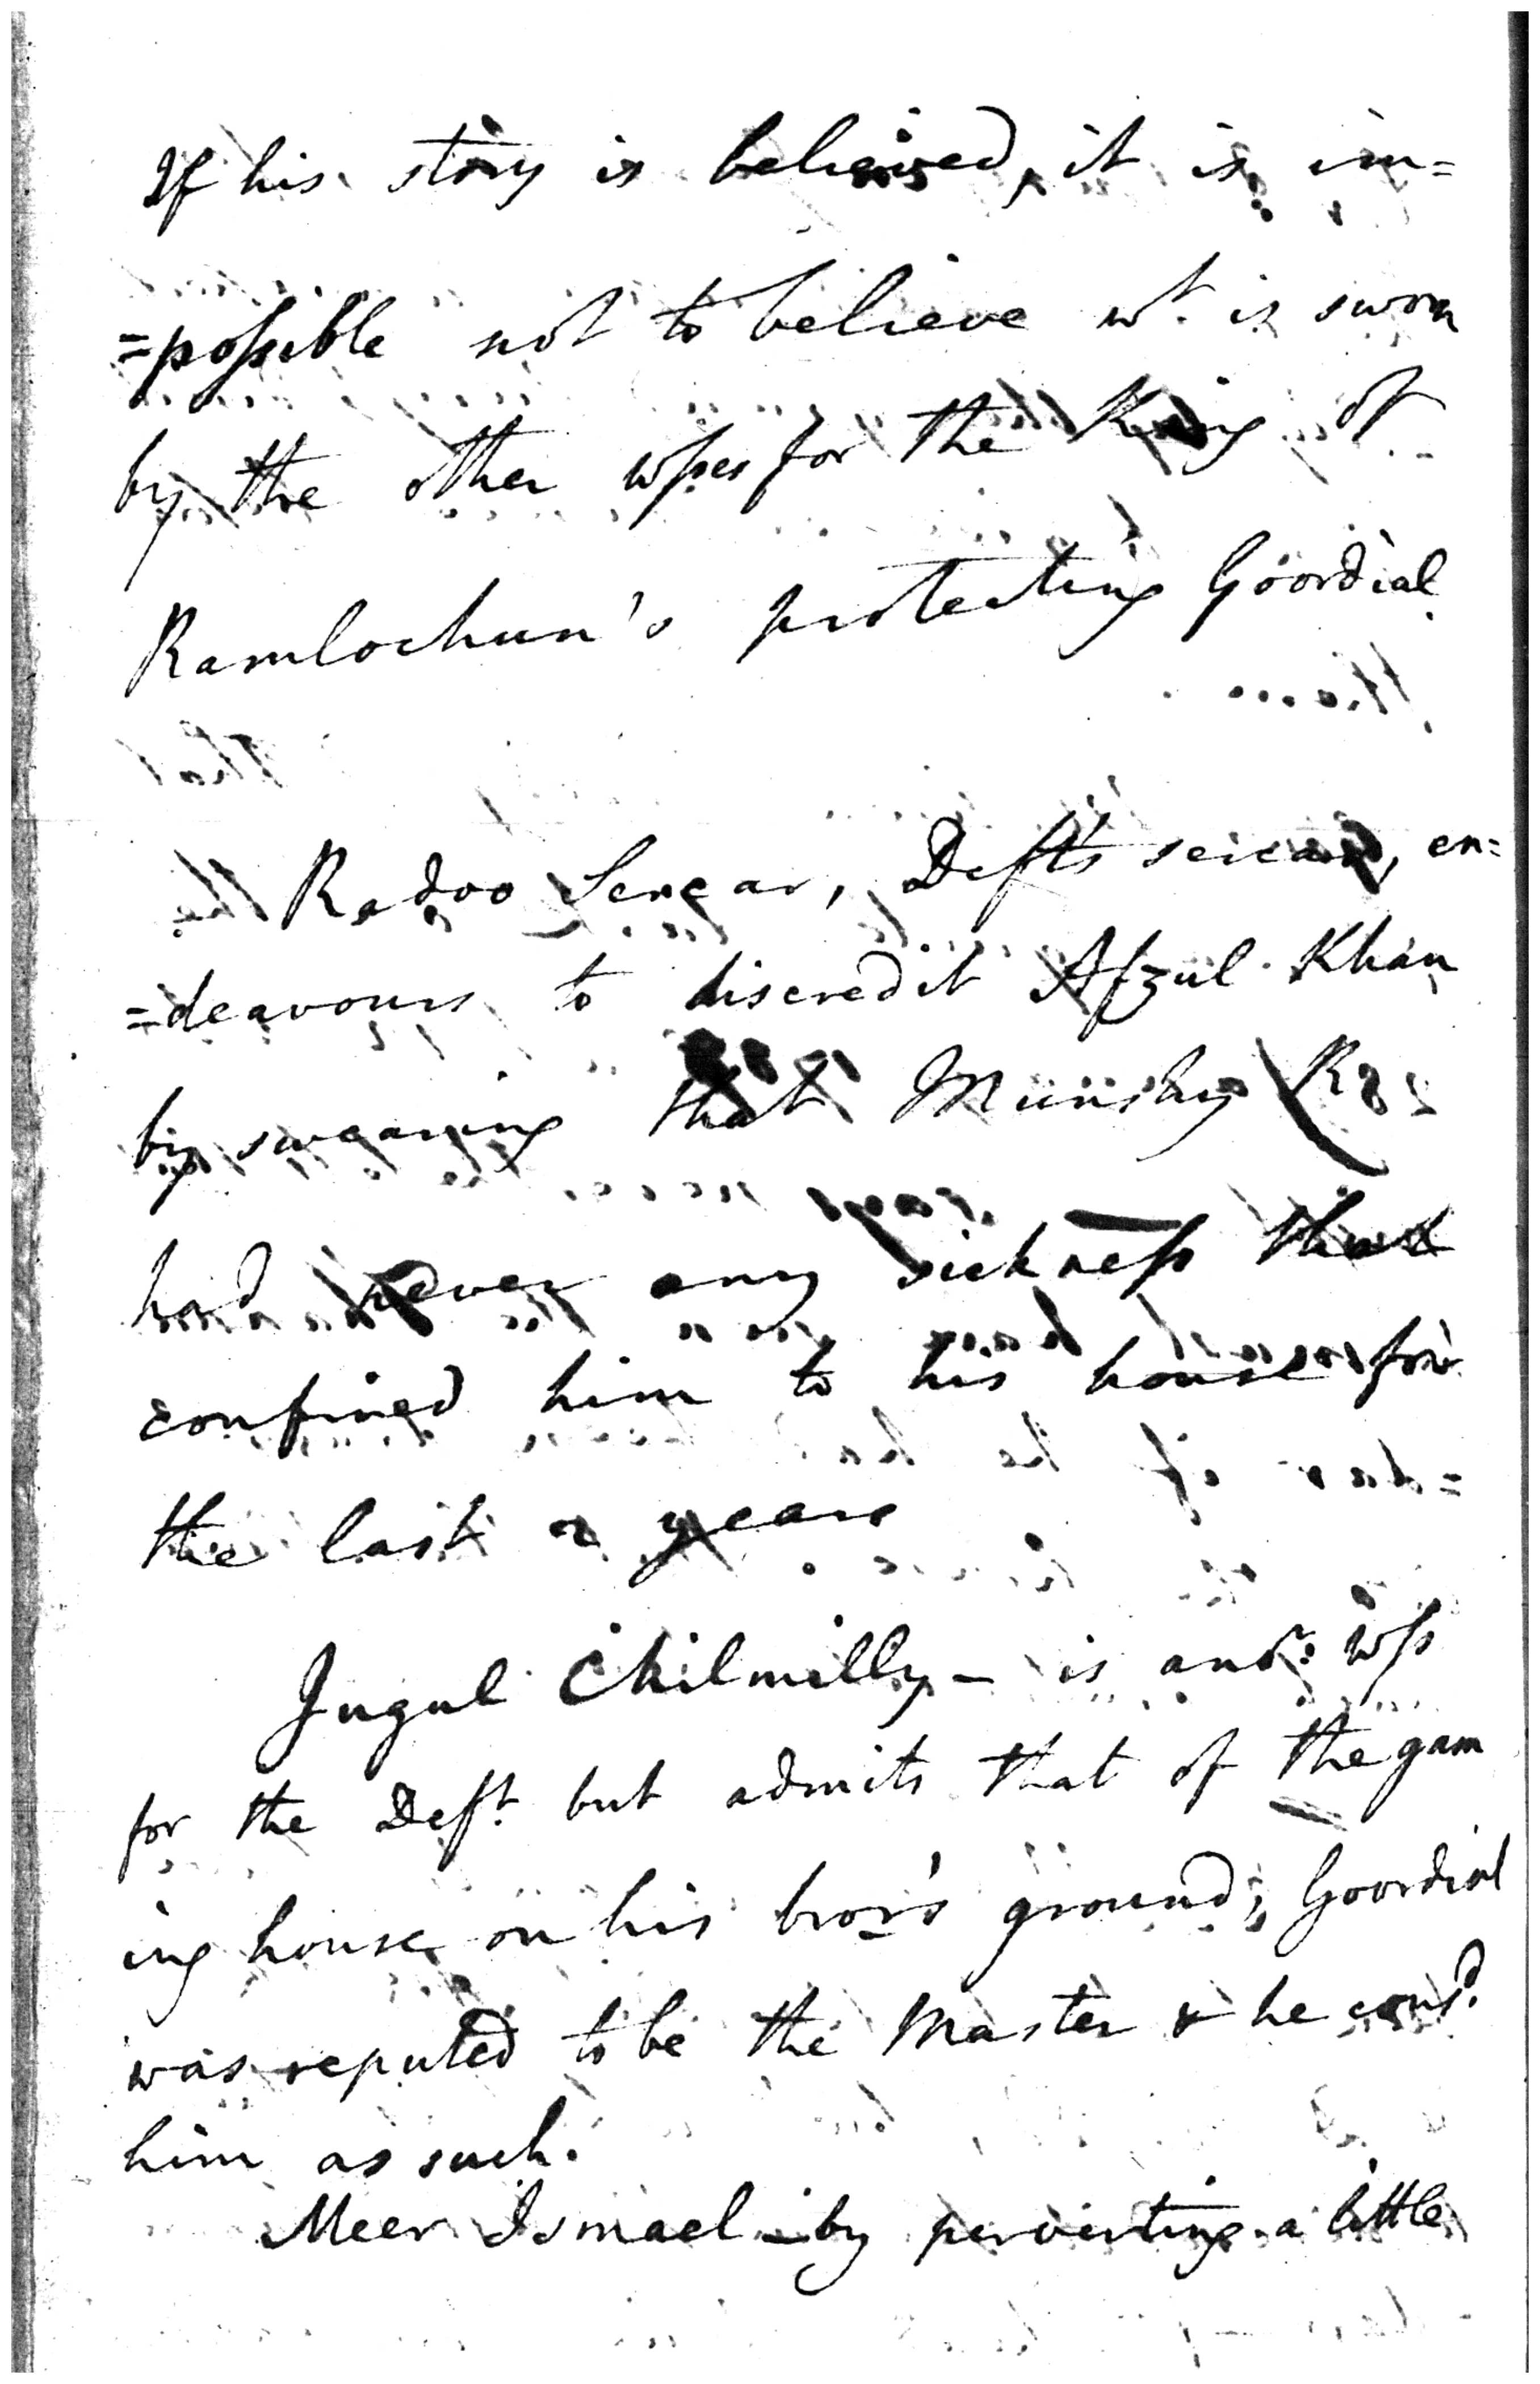 If his story is believed, it is im=
=possible not to believe wt. is sworn
by the other wsses for the King of
Ramlochun's protecting Goordial
Radoo Sercar, Defts sercar, en=
=deavours to discredit Afzul Khan
by swearing that Munshy
had never any sickness that
confined him to his house for
the last 2 years
Jugul Chilmilly - is anor: wss
for the Deft. but admits that of the gam
ing house on his bror's ground; Goordial
was reputed to be the Master & he consd.
him as such.
Meer Ismael - by perverting a little